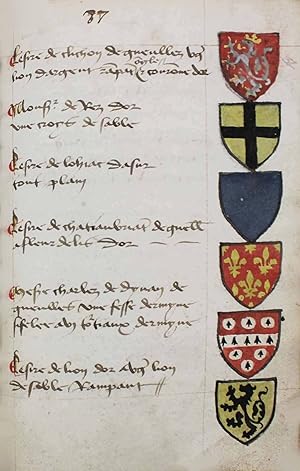 37
Le sire de clichon de gueulles ung
lion d'argent rampāt couronne dor
Mons^r de Rez dor
une croys de sable
Le sire de lohiac dasur
tout plain
Le sire de chatiaubriāt de gueull
a fleur de lis dor
Mesire charles de dynan de
gueulles une fesse dermyne
a tortiaux dermyne
Le sire de lion dor ung lion
de sable Rampant